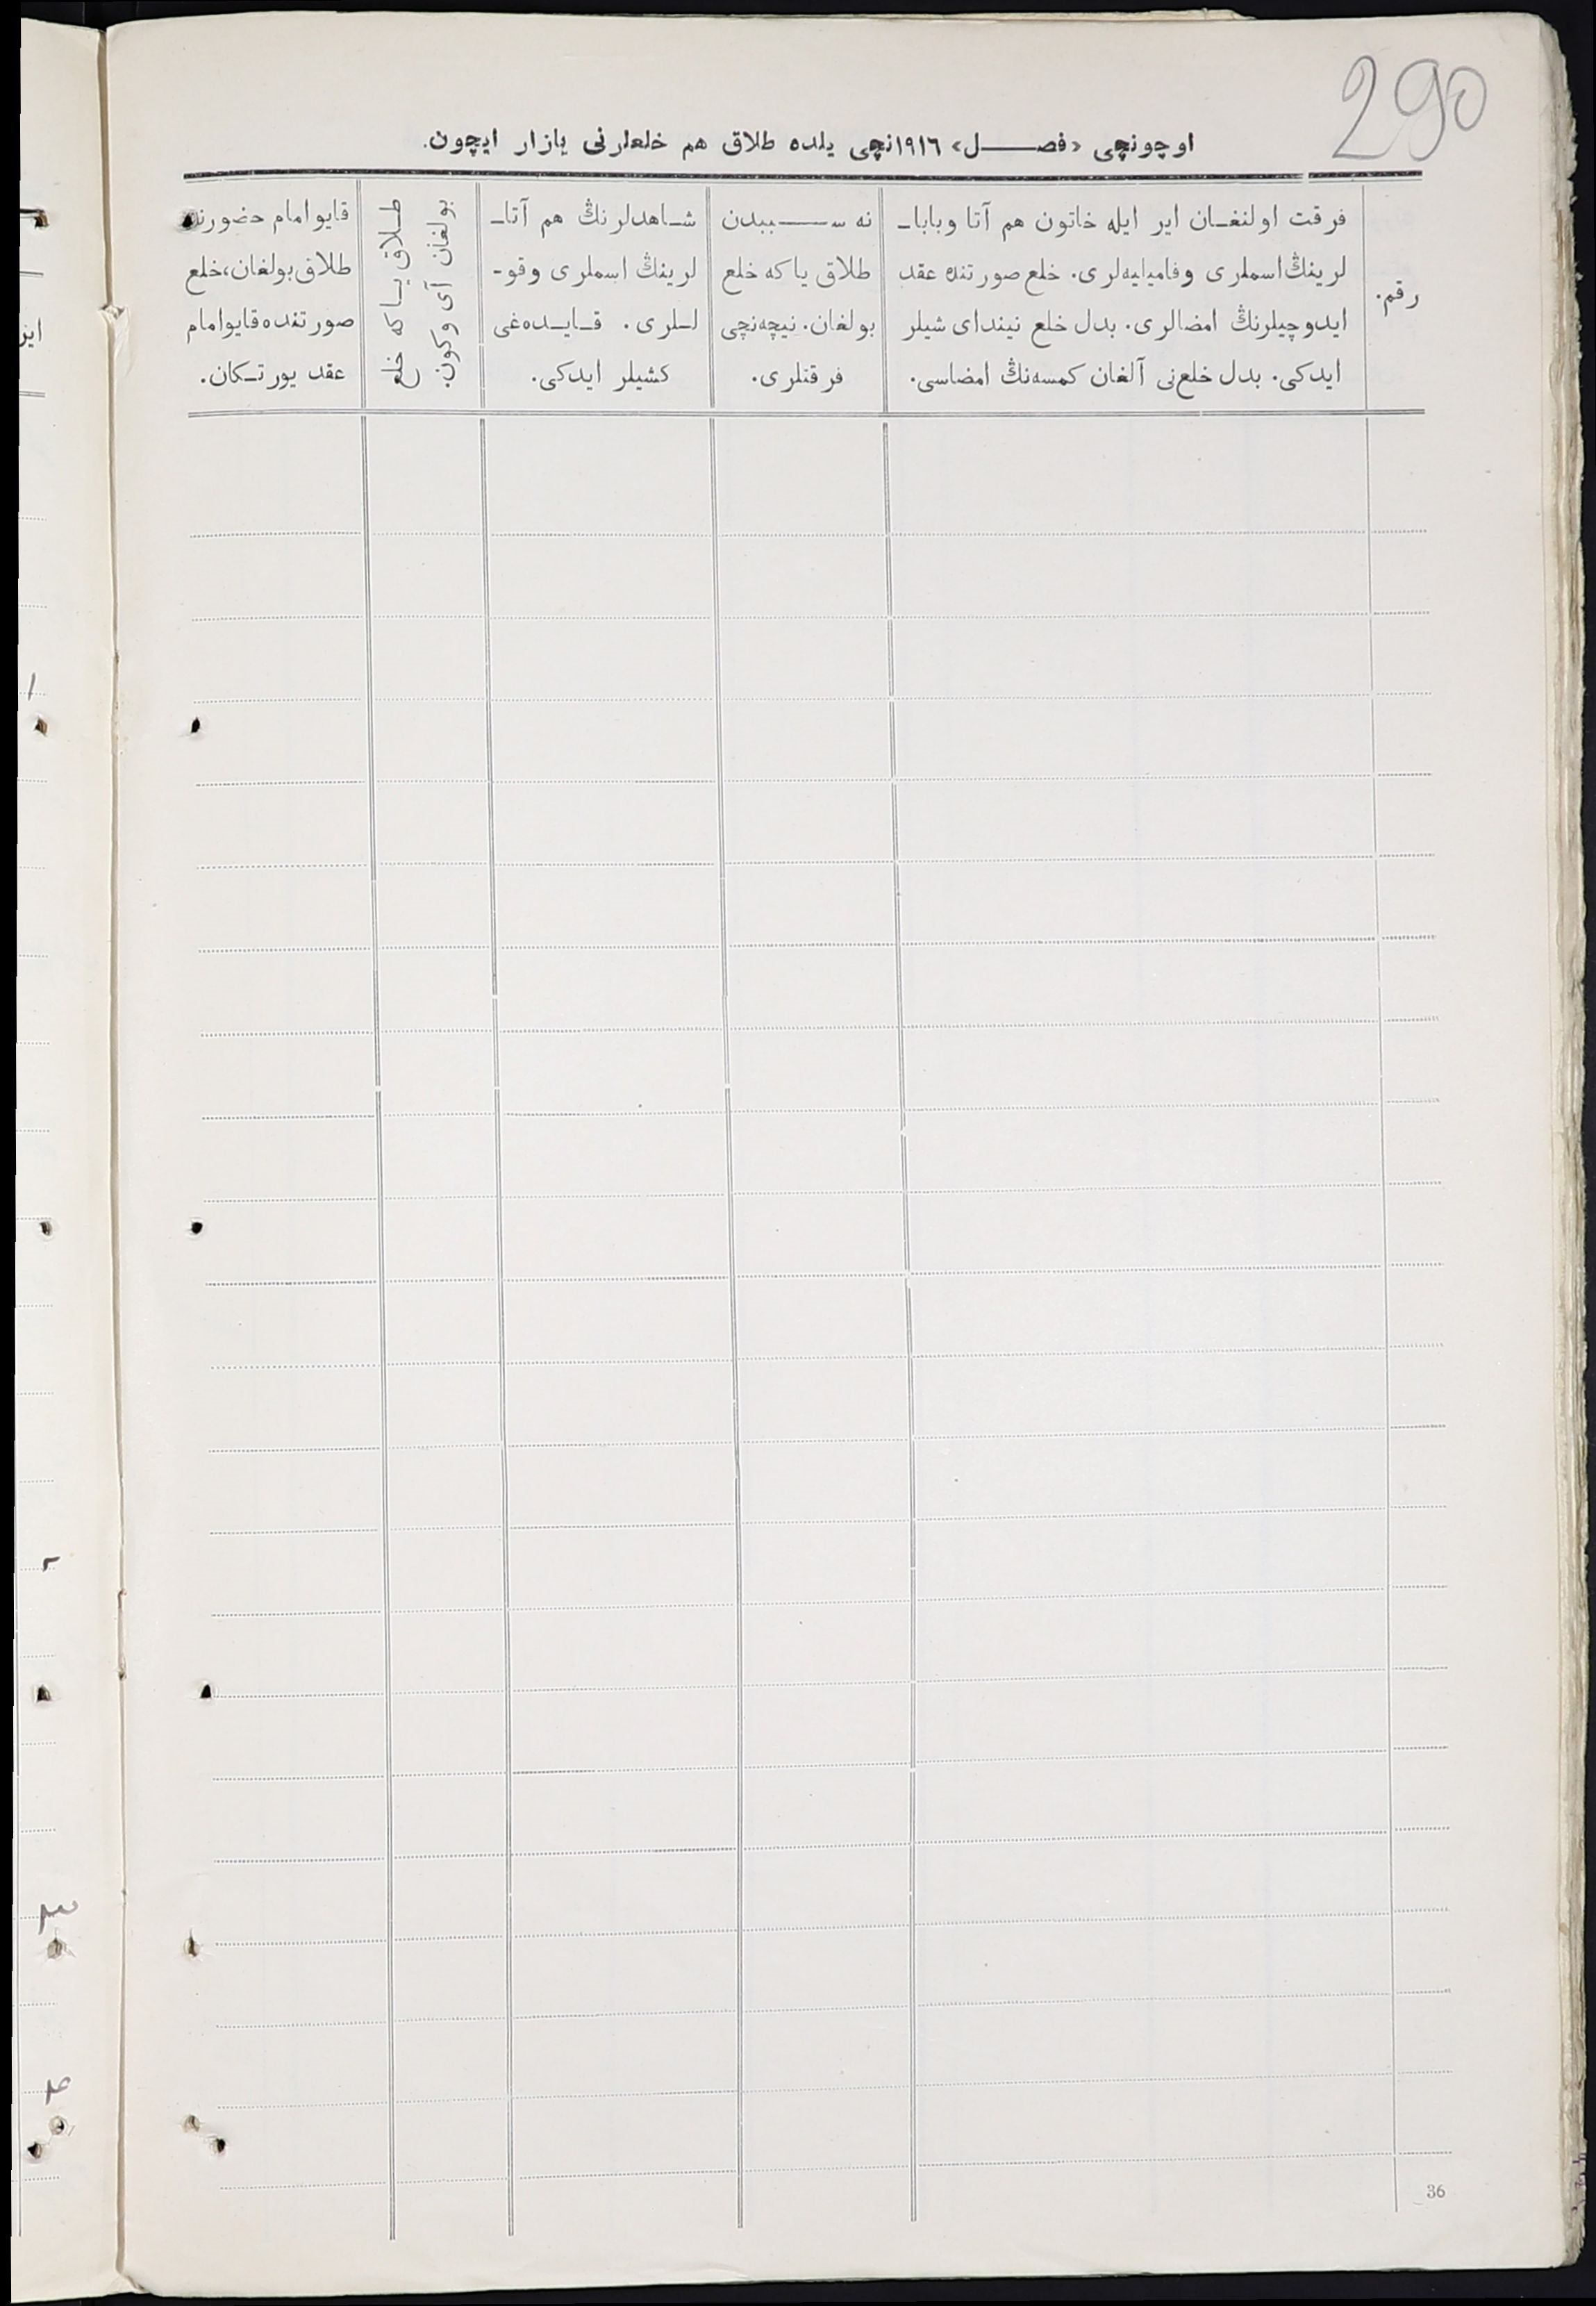 290
اوچونچی «فصـــل» ١٩١٦نچی یلده طلاق هم خلعلرنی یازار ایچون.
رقم.
فرقت اولنغـان ایر ایله خاتون هم آتا وبابا-
لرینڭ اسملری وفامیلیه‌لری. خلع صورتنده عقد
ایدوچیلرنڭ امضالری. بدل خلع نیندای شیلر
ایدکی. بدل خلع‌نی آلغان کمسه‌نڭ امضاسی.
نه ســـببدن
طلاق یاکه خلع
بولغان. نیچه‌نچی
فرقتلری.
شـاهدلرنڭ هم آتا-
لرینڭ اسملری وقو-
لـلری. قـایـده‌غی
کشیلر ایدکی.
طـلاق یـاکه خلع
بولغان آی وکون.
قایو امام حضورنده
طلاق بولغان، خلع
صورتنده قایو امام
عقد یورتـکان.
36